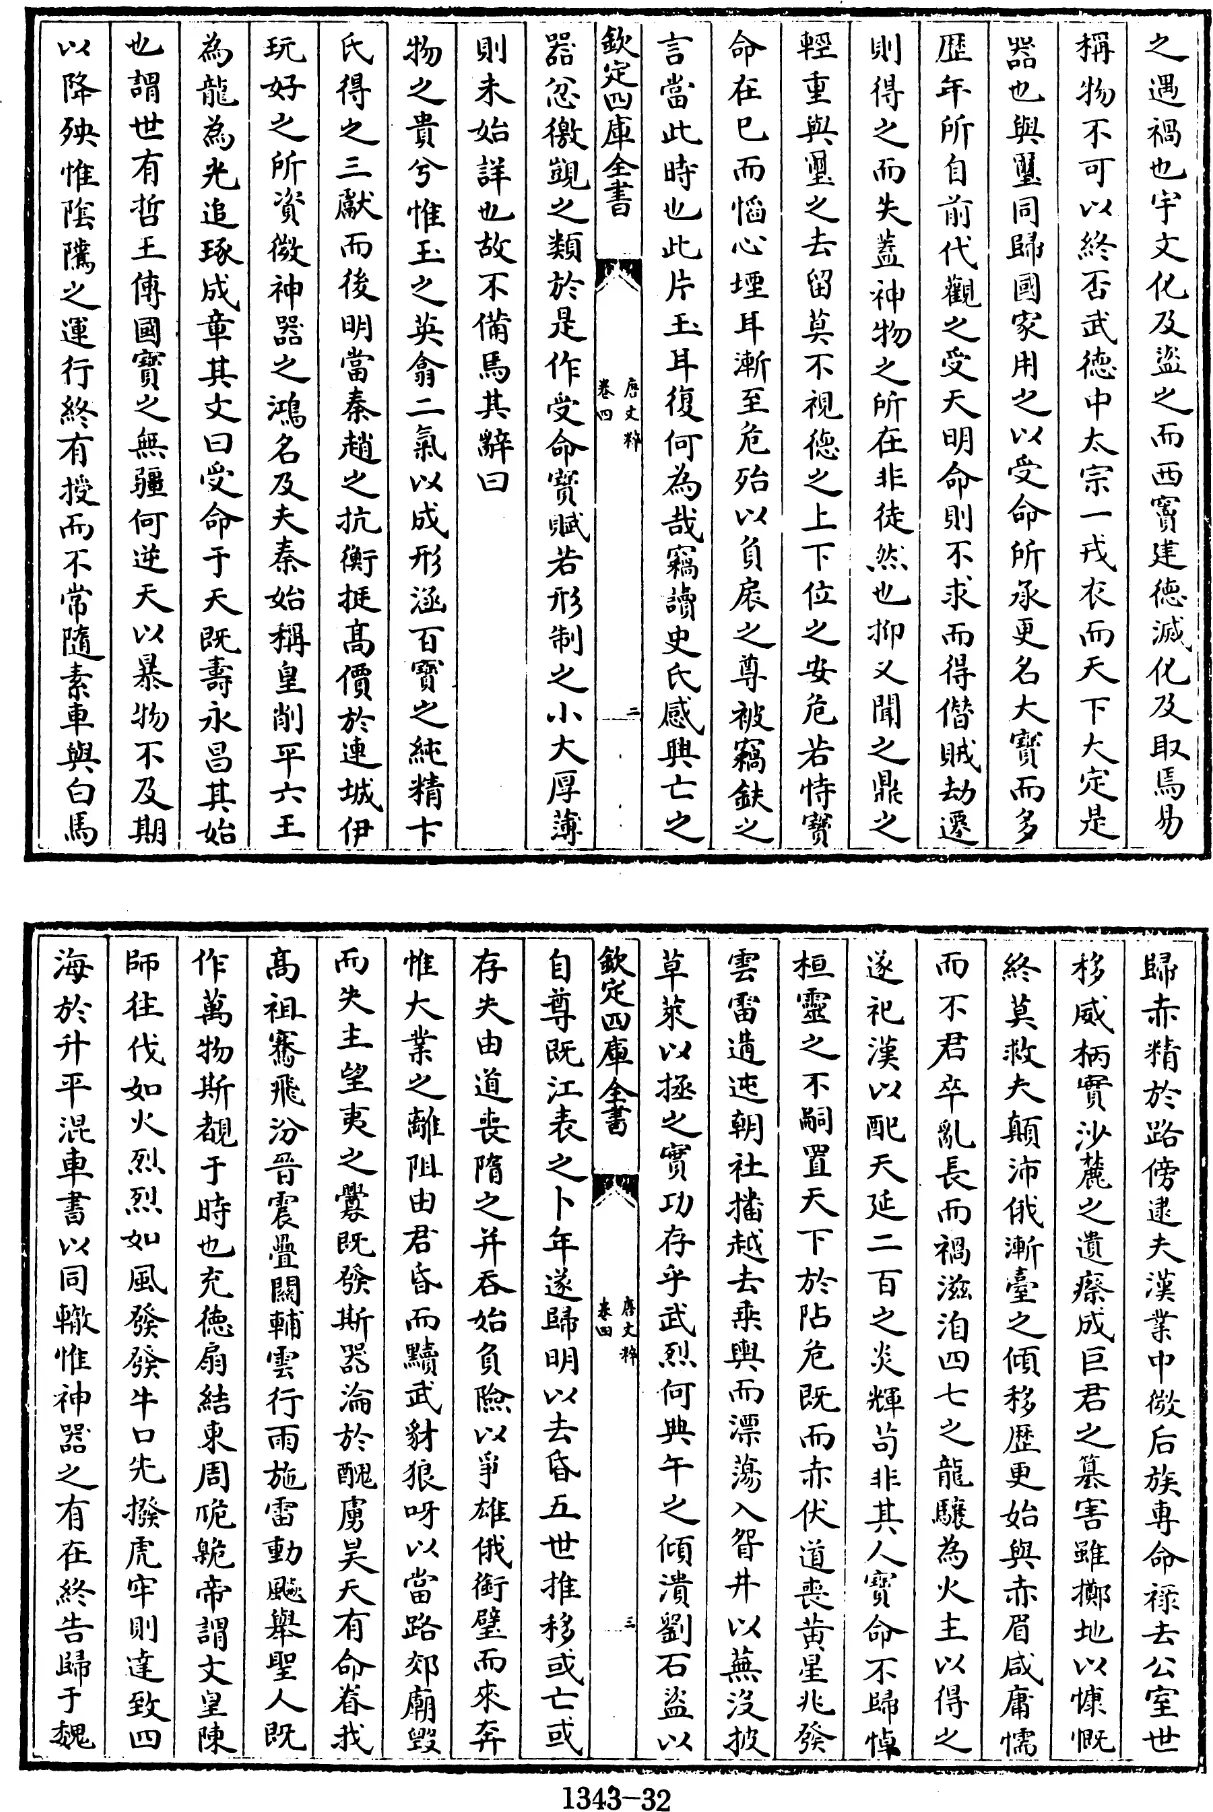 之遇禍也宇文化及盜之而西竇建德滅化及取焉易
稱物不可以終否武徳中太宗一戎衣而天下大定是
器也與璽同歸國家用之以受命所承更名大寳而多
歴年所自前代觀之受天明命則不求而得僣賊劫遷
則得之而失蓋神物之所在非徒然也抑又聞之鼎之
輕重與璽之去留莫不視徳之上下位之安危若恃寳
命在已而慆心堙耳漸至危殆以負扆之尊被竊鈇之
言當此時也此片玉耳復何為哉竊讀史氏感興亡之
欽定四庫全書
唐文粹
卷四
二
器忿徼覬之類於是作受命寳賦若形制之小大厚薄
則未始詳也故不備焉其辭曰
物之貴兮惟玉之英翕二氣以成形涵百寳之純精卞
氏得之三獻而後明當秦趙之抗衡挺髙價於連城伊
玩好之所資微神器之鴻名及夫秦始稱皇削平六王
為龍為光追琢成章其文曰受命于天既壽永昌其始
也謂世有哲王傳國寳之無疆何逆天以暴物不及期
以降殃惟隂隲之運行終有授而不常隨素車與白馬
歸赤精於路傍逮夫漢業中微后族專命禄去公室世
移威柄實沙麓之遺瘵成巨君之簒害雖擲地以慷慨
終莫救夫顛沛俄漸臺之傾移歴更始與赤眉咸庸懦
而不君卒亂長而禍滋洎四七之龍驤為火主以得之
遂祀漢以配天延二百之炎輝茍非其人寳命不歸悼
桓靈之不嗣置天下於阽危既而赤伏道喪黄星兆發
雲雷遘迍朝社播越去乘輿而漂蕩入眢井以蕪没披
草萊以拯之實功存乎武烈何典午之傾潰劉石盜以
欽定四庫全書
唐文粹
卷四
三
自尊既江表之卜年遂歸明以去昏五世推移或亡或
存失由道喪隋之并吞始負險以爭雄俄銜璧而來奔
惟大業之離阻由君昏而黷武豺狼呀以當路郊廟毀
而失主望夷之釁既發斯器淪於醜虜昊天有命眷我
髙祖騫飛汾晉震疊闗輔雲行雨施雷動飈舉聖人既
作萬物斯覩于時也充徳扇結東周阢臲帝謂文皇陳
師往伐如火烈烈如風發發牛口先撥虎牢則達致四
海於升平混車書以同轍惟神器之有在終告歸于魏
1343-32